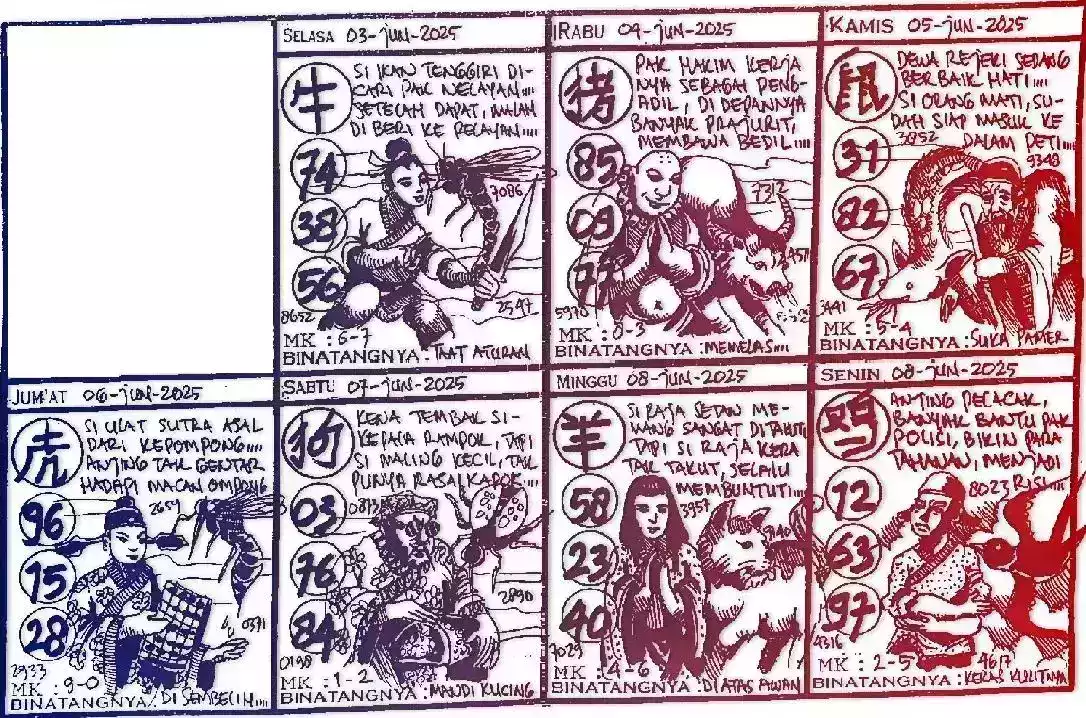 SELASA 03-JUN-2025
牛
SI IKAN TENGGIRI DI-
CARI PAK NELAYAN....
SETELAH DAPAT, MALAH
DI BERI KE PELAYAN....
74
7086
38
56
8652
2547
MK : 6-7
BINATANGNYA : TAAT ATURAN
RABU 04-JUN-2025
猪
PAK HAKIM KERJA
NYA SEBAGAI PENG-
ADIL, DI DEPANNYA
BANYAK PRAJURIT,
MEMBAWA BEDIL....
85
7312
09
77
5970
MK : 8-3
BINATANGNYA : MEMELAS....
KAMIS 05-JUN-2025
鼠
DEWA REJEKI SEDANG
BERBAIK HATI....
SI ORANG MATI, SU-
DAH SIAP MASUK KE
DALAM PETI....
3852
9348
31
82
67
3441
MK : 5-4
BINATANGNYA : SUKA PAMER
JUM'AT 06-JUN-2025
虎
SI ULAT SUTRA ASAL
DARI KEPOMPONG....
ANJING TAK GENTAR
HADAPI MACAN OMPONG
2659
96
15
28
0371
2933
MK : 9-0
BINATANGNYA : DI SEMBELIH....
SABTU 07-JUN-2025
狗
KENA TEMBAK SI-
KEPALA RAMPOK, TAPI
SI MALING KECIL, TAK
PUNYA RASA KAPOK....
03
76
2890
84
0198
MK : 1-2
BINATANGNYA : MANDI KUCING
MINGGU 08-JUN-2025
羊
SI RAJA SETAN ME-
MANG SANGAT DITAKUTI
TAPI SI RAJA KERA
TAK TAKUT, SELALU
MEMBUNTUTI....
58
3957
23
40
7029
MK : 4-6
BINATANGNYA : DI ATAS AWAN
SENIN 08-JUN-2025
鸡
ANJING PELACAK,
BANYAK BANTU PAK
POLISI, BIKIN PARA
TAHANAN, MENJADI
8023 RISI....
12
63
97
4316
4617
MK : 2-5
BINATANGNYA : KERAS KULITNYA